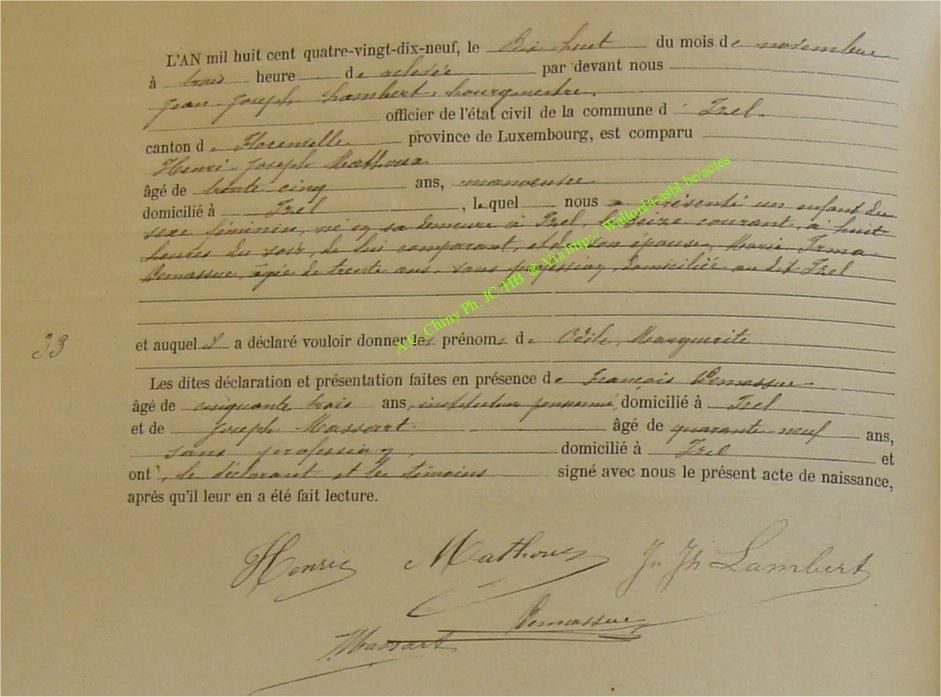 L'AN mil huit cent quatre-vingt-dix-neuf, le dix huit du mois de novembre
à trois heure de relevée par devant nous
Jean-Joseph Lambert, bourgmestre,
officier de l'état civil de la commune d' Izel.
canton de Florenville province de Luxembourg, est comparu
Henri-Joseph Mathoux
âgé de trente cinq ans, manoeuvre
domicilié à Izel, lequel nous a présenté un enfant du
sexe féminin, né en sa demeure à Izel, le seize courant, à huit
heures du soir, de lui comparant, et de son épouse, Marie Irma
Demasseur, agée de trente ans, sans profession, domiciliée au dit Izel
33
et auquel il a déclaré vouloir donner les prénoms de Cécile, Marguerite
Les dites déclaration et présentation faites en présence de François
âgé de cinquante trois ans, instituteur pensionné, domicilié à Izel
et de Joseph Massart âgé de quarante neuf ans,
sans profession, domicilié à Izel et
ont, le déclarant et les témoins signé avec nous le présent acte de naissance,
après qu'il leur en a été fait lecture.
Henri Mathoux Jn Jh Lambert
Massart
A.C. Chiny Ph. JC/HB @ Via http:// Wallonia-asbl.be/actes